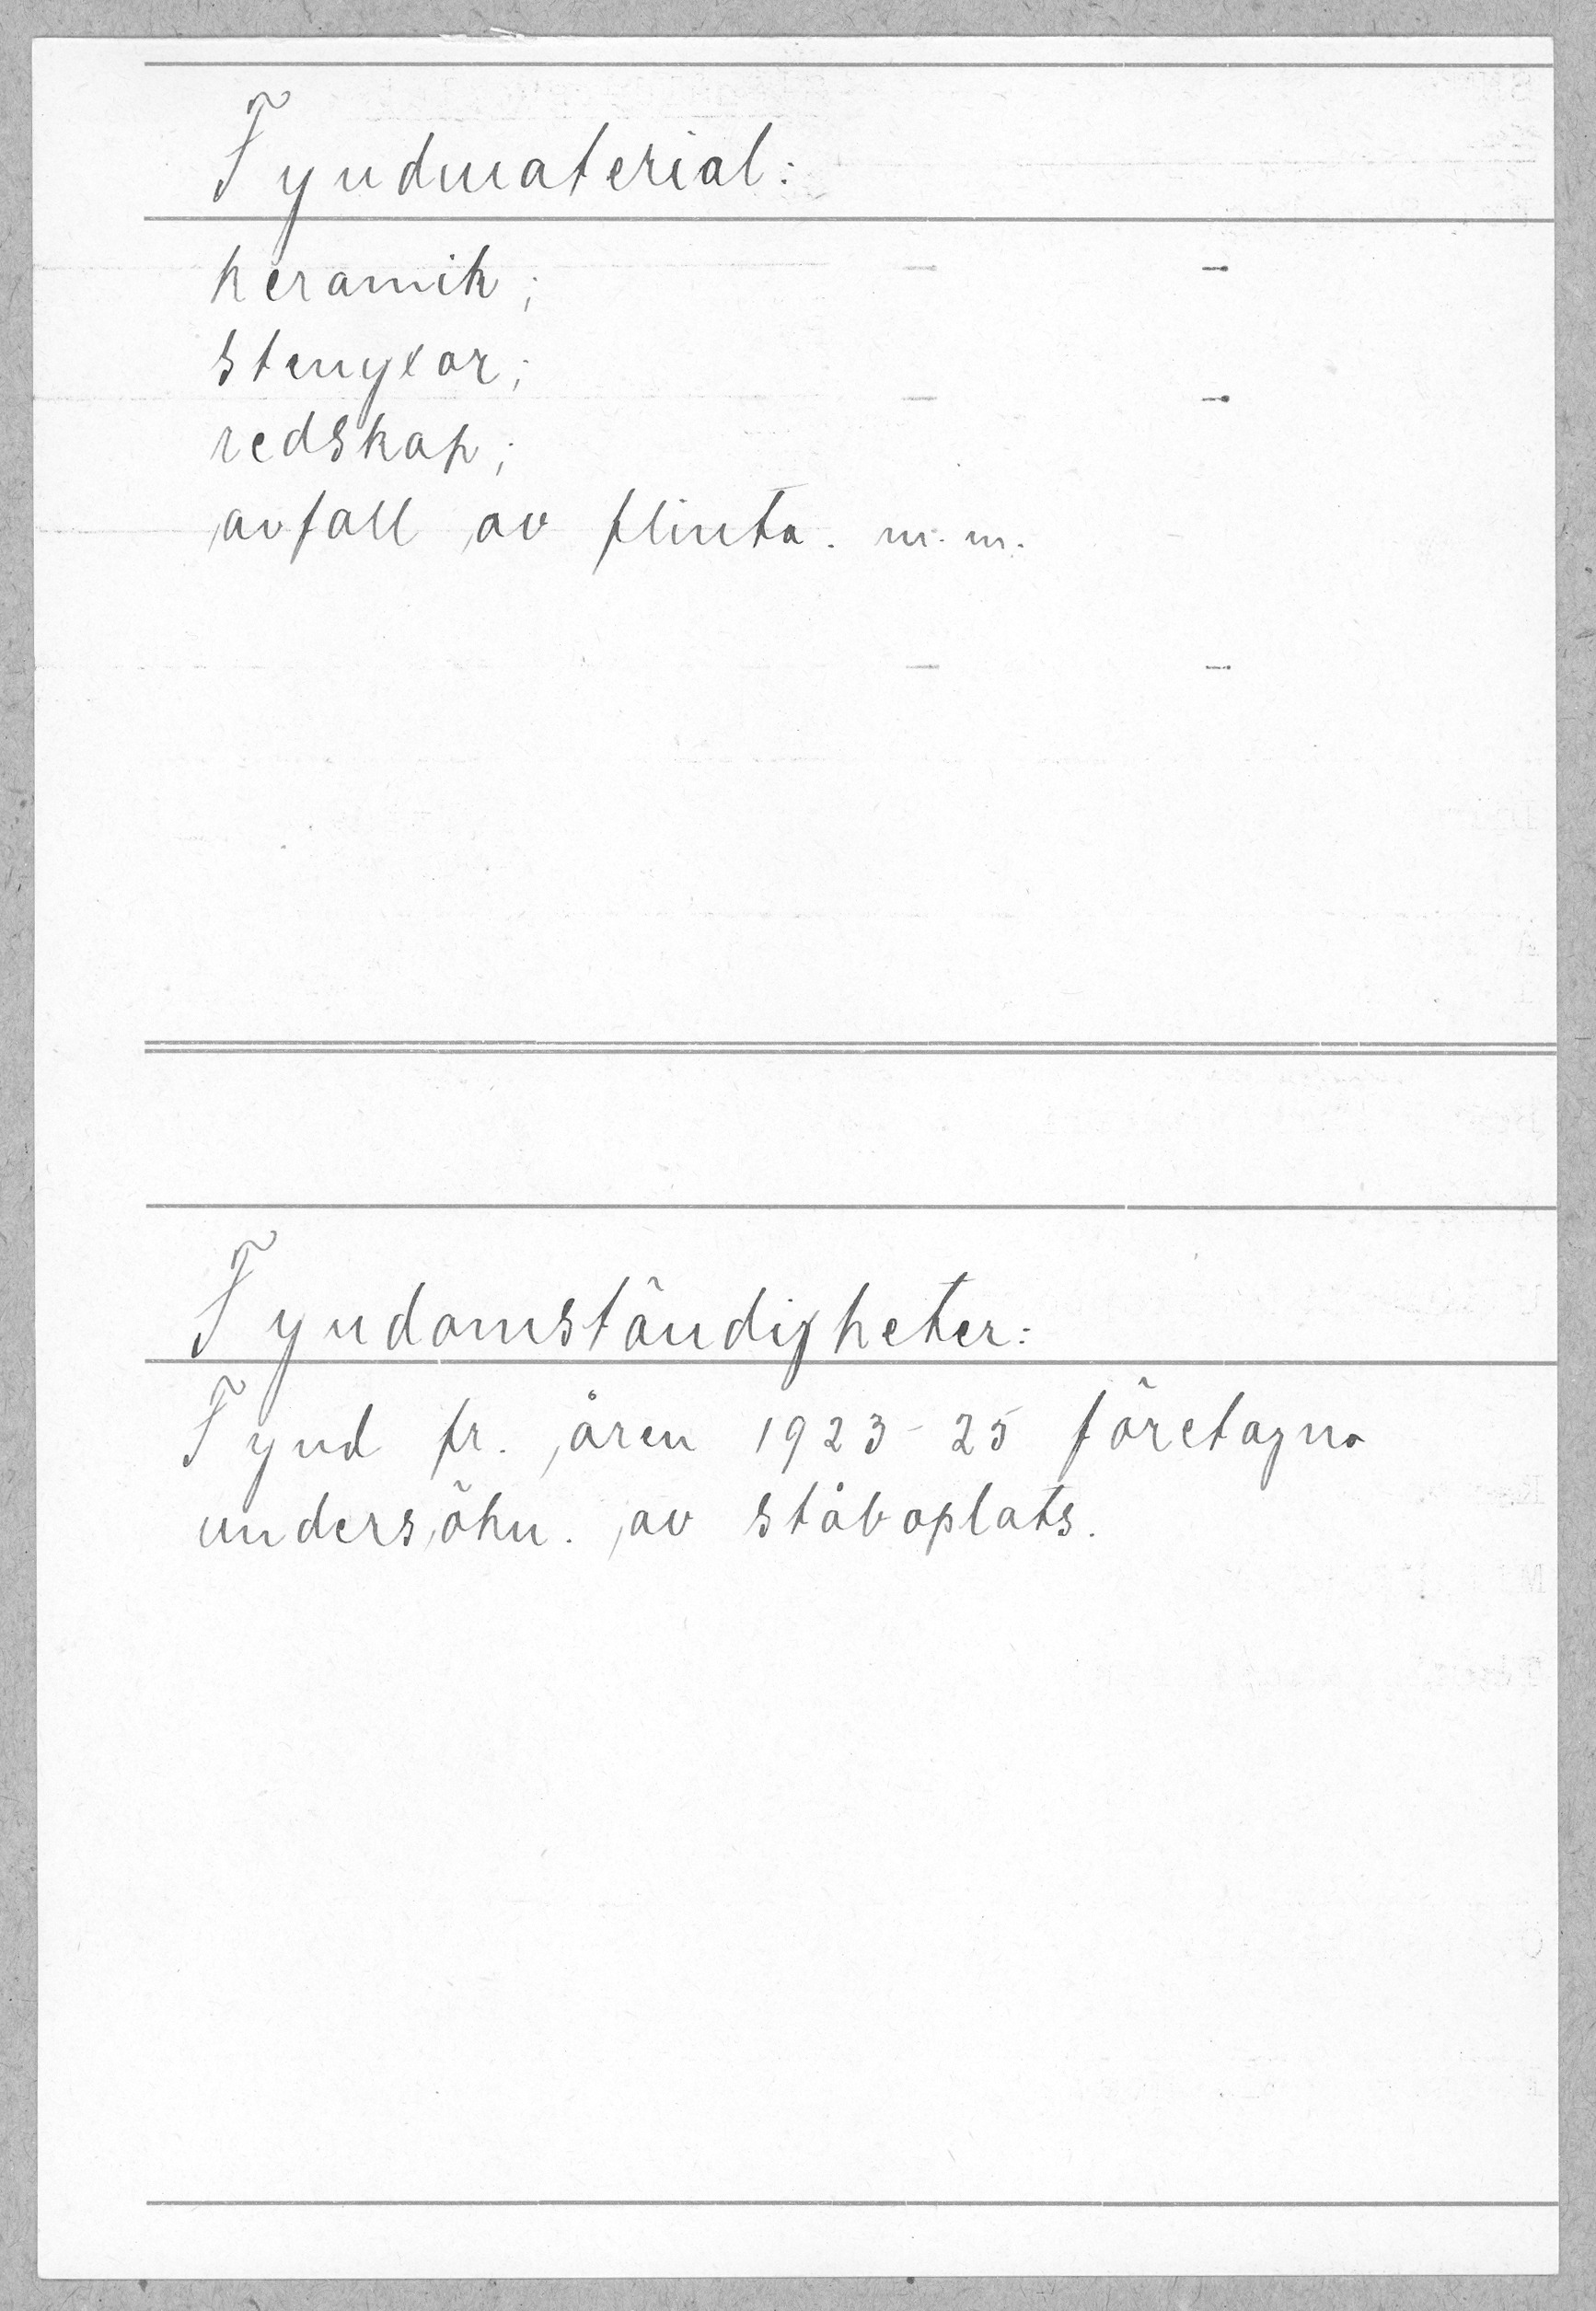 Fyndmaterial:
keramik;
stenyxor;
redskap;
avfall av flinta. m.m.
Fyndomständigheter:
Fynd fr. åren 1923-25 företagna
undersökn. av ståboplats.